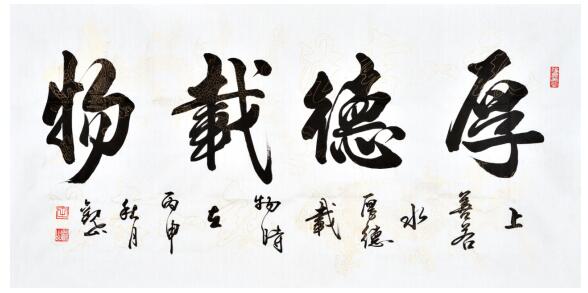 厚德載物
上
善若
水
厚德
載
物時
在
丙申
秋月